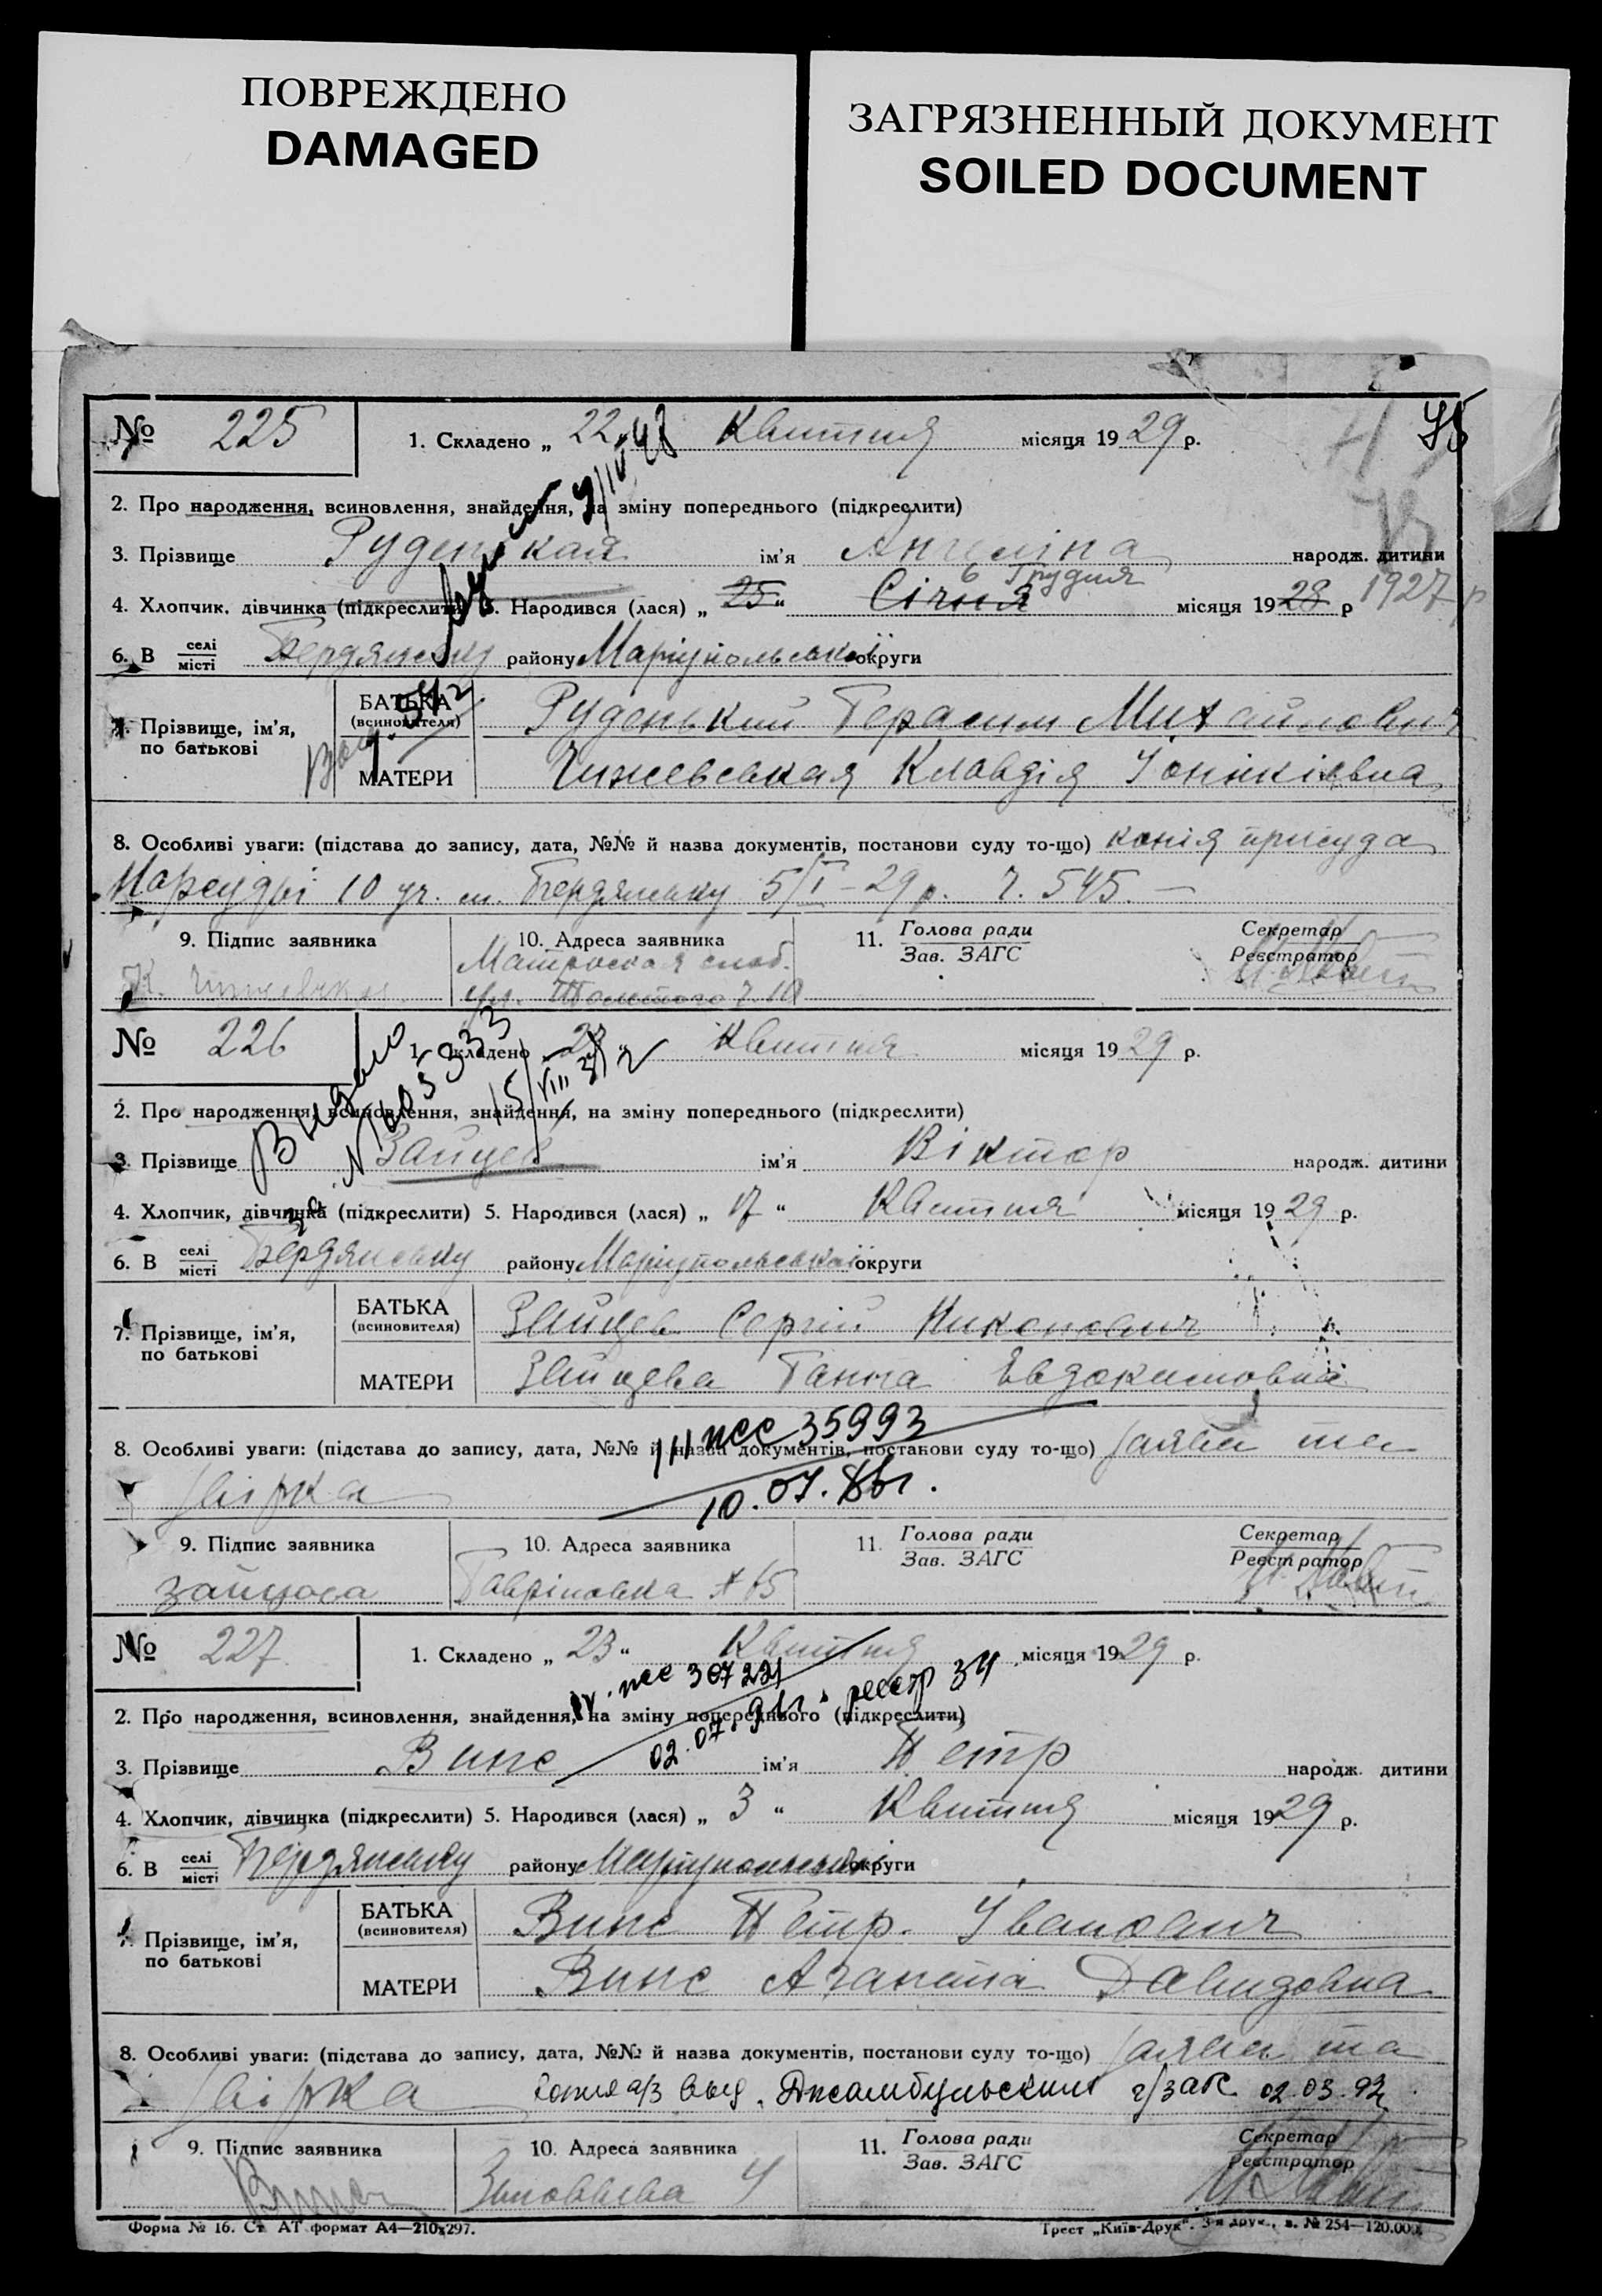 ПОВРЕЖДЕНО
DAMAGED
ЗАГРЯЗНЕННЫЙ ДОКУМЕНТ
SOILED DOCUMENT
75
№ 225
1. Складено „ 22 “ Квитня місяця 1929 р.
2. Про народження, всиновлення, знайдення, на зміну попереднього (підкреслити)
3. Прізвище Руденькая ім'я Ангеліна народж. дитини
6 Грудня
4. Хлопчик, дівчинка (підкреслити) 5. Народився (лася) „ 25 “ Січня місяця 1928 р 1927 р
6. В селі місті Бердянську району Маріупольської округи
7. Прізвище, ім'я, по батькові
БАТЬКА (всиновителя) Руденький Герасим Михайлович
МАТЕРИ Чижевськая Клавдія Іонікіевна
8. Особливі уваги: (підстава до запису, дата, №№ й назва документів, постанови суду то-що) копія присуда
Нарсуды 10 уч. м. Бердянську 5/I–29 р. Ч. 545.
9. Підпис заявника
10. Адреса заявника
Матроская слоб.
ул. Толстого Ч. 10
11. Голова ради Зав. ЗАГС
Секретар Реєстратор
№ 226
1. Складено „ 23 “ Квитня місяця 1929 р.
Видано
2. Про народження, всиновлення, знайдення, на зміну попереднього (підкреслити)
3. Прізвище Зайцев ім'я Віктор народж. дитини
4. Хлопчик, дівчинка (підкреслити) 5. Народився (лася) „ 17 “ Квитня місяця 1929 р.
6. В селі місті Бердянську району Маріупольської округи
7. Прізвище, ім'я, по батькові
БАТЬКА (всиновителя) Зайцев Сергій Никонович
МАТЕРИ Зайцева Ганна Евдокимовна
35993
8. Особливі уваги: (підстава до запису, дата, №№ й назва документів, постанови суду то-що) заява та
звірка
10.07.
9. Підпис заявника
Зайцева
10. Адреса заявника
11. Голова ради Зав. ЗАГС
Секретар Реєстратор
№ 227
1. Складено „ 23 “ Квитня місяця 1929 р.
реестр 34
2. Про народження, всиновлення, знайдення, на зміну попереднього (підкреслити)
02.07.
3. Прізвище Винс ім'я Петр народж. дитини
4. Хлопчик, дівчинка (підкреслити) 5. Народився (лася) „ 3 “ Квитня місяця 1929 р.
6. В селі місті Бердянську району Маріупольської округи
7. Прізвище, ім'я, по батькові
БАТЬКА (всиновителя) Винс Петр. Іванович
МАТЕРИ Винс Аганета Давидовна
8. Особливі уваги: (підстава до запису, дата, №№ й назва документів, постанови суду то-що) заява та
звірка копия а/з выд. Джамбульским г/загс 02.03.92
9. Підпис заявника
Винс
10. Адреса заявника
Зиновьева 4
11. Голова ради Зав. ЗАГС
Секретар Реєстратор
Форма № 16. Ст АТ формат А4—210х297.
Трест „Київ-Друк“. 3-я друк., з. № 254—120.000.